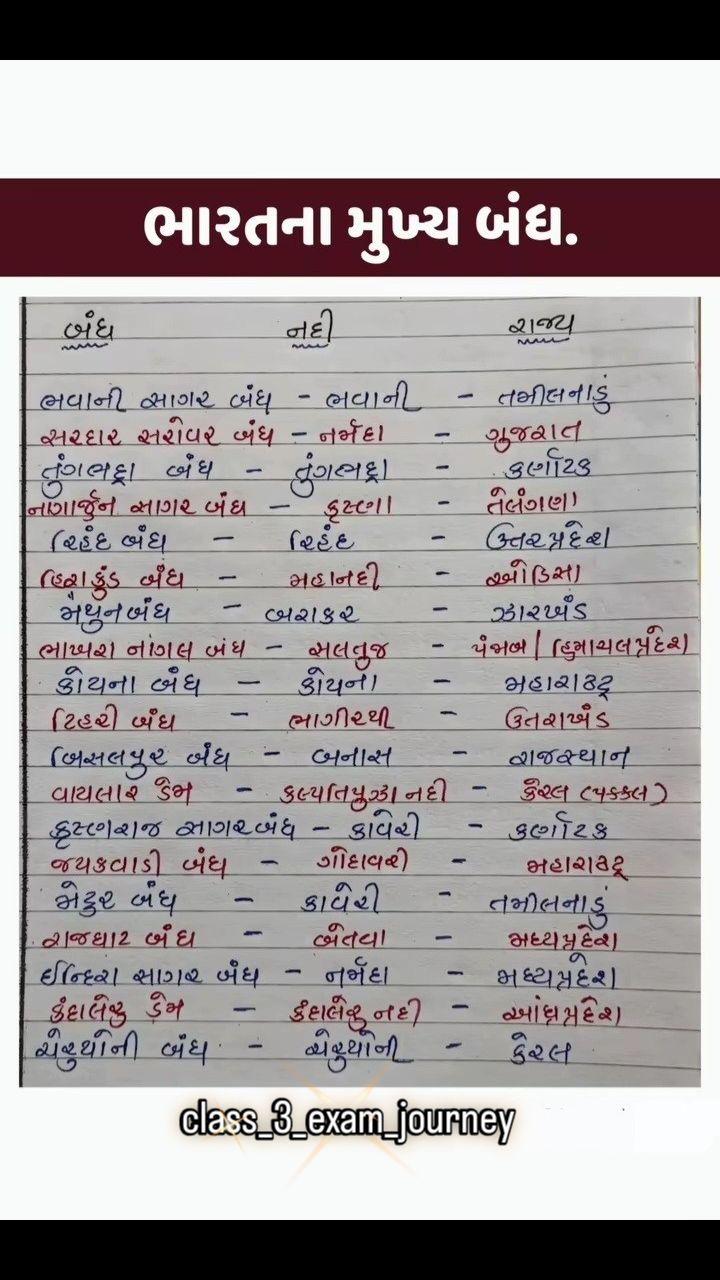 ભારતના મુખ્ય બંધ.
બંધ નદી રાજ્ય
ભવાની સાગર બંધ - ભવાની - તમીલનાડું
સરદાર સરોવર બંધ - નર્મદા - ગુજરાત
તુંગભદ્રા બંધ - તુંગભદ્રા - કર્ણાટક
નાગાર્જુન સાગર બંધ - કૃષ્ણા - તેલંગણા
રિહંદ બંધ - રિહંદ - ઉત્તરપ્રદેશ
હિરાકુંડ બંધ - મહાનદી - ઓડિસા
મૈથુનબંધ - બરાકર - ઝારખંડ
ભાખરા નાંગલ બંધ - સલતુજ - પંજાબ / હિમાચલપ્રદેશ
કોયના બંધ - કોયના - મહારાષ્ટ્ર
ટિહરી બંધ - ભાગીરથી - ઉતરાખંડ
બિસલપુર બંધ - બનાસ - રાજસ્થાન
વાયલાર ડેમ - નદી - કેરલ
કૃષ્ણરાજ સાગરબંધ - કાવેરી - કર્ણાટક
જયકવાડી બંધ - ગોદાવરી - મહારાષ્ટ્ર
મેટુર બંધ - કાવેરી - તમીલનાડું
રાજઘાટ બંધ - બેતવા - મધ્યપ્રદેશ
ઈન્દિરા સાગર બંધ - નર્મદા - મધ્યપ્રદેશ
કંદાલેરુ ડેમ - કંદાલેરુ નદી - આંધ્રપ્રદેશ
ચેરુથોની બંધ - ચેરુથોની - કેરલ
class_3_exam_journey